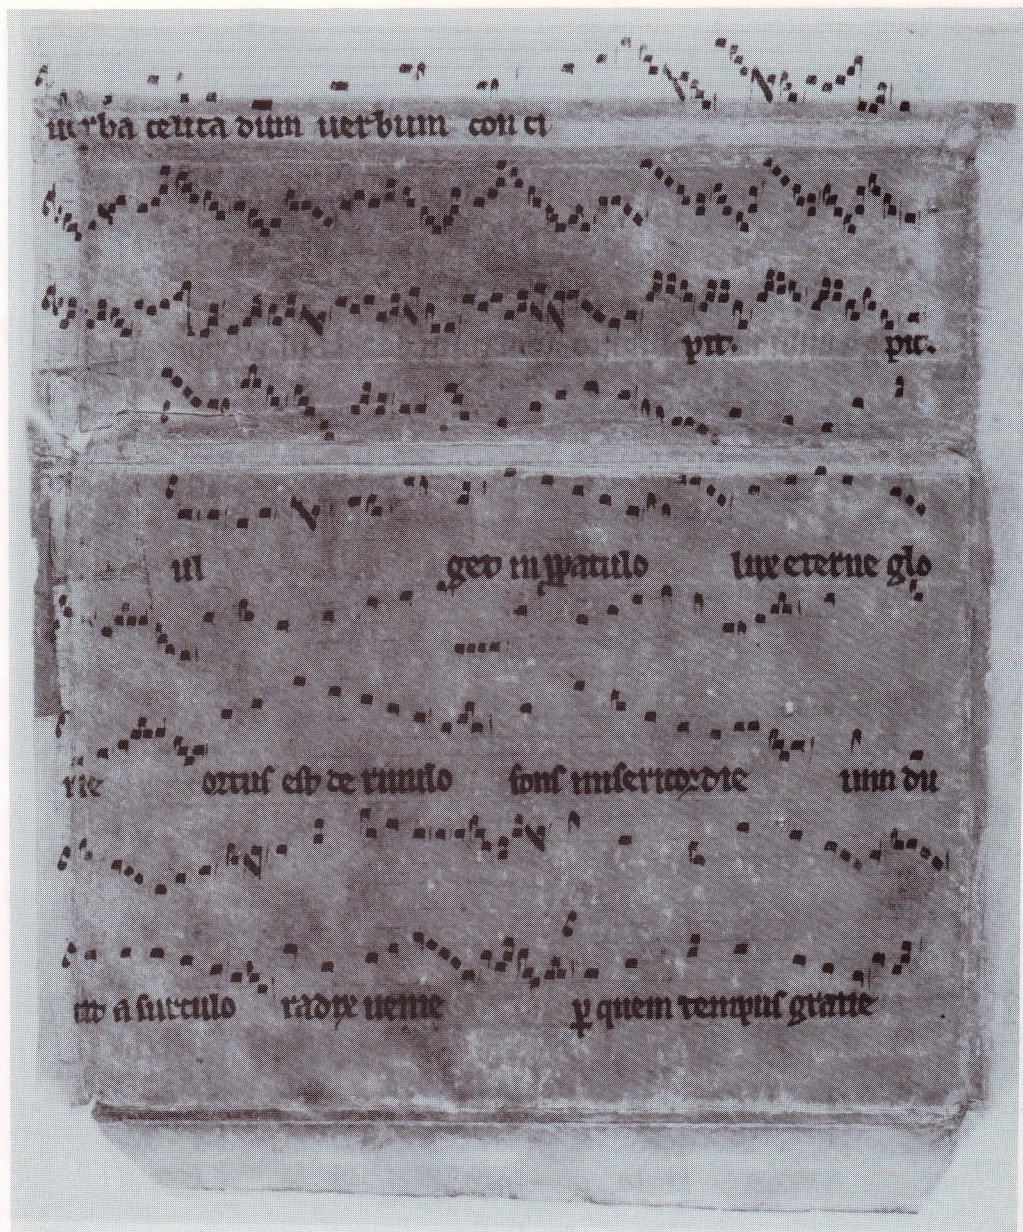 uerba celica dum uerbum con ci
pit. pit.
ful get in speculo lux eterne glo
rie ortus est de riuulo fons misericordie uim du
cit a surculo radix uenie per quem tempus gratie